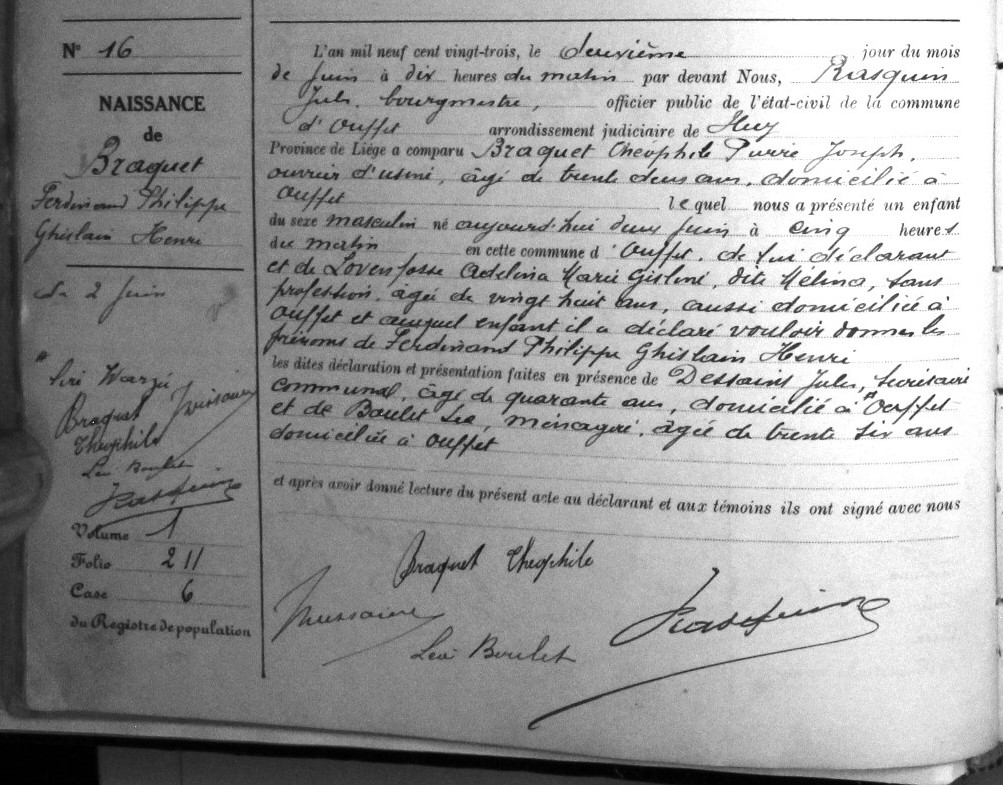 N° 16
NAISSANCE
de
Braquet
Ferdinand Philippe
Ghislain Henri
Le 2 Juin
Warzée
Braquet
Théophile
Léa Boulet
Volume 1
Folio 211
Case 6
du Registre de population
L'an mil neuf cent vingt-trois, le deuxième jour du mois
de Juin à dix heures du matin par devant Nous, Rasquin
Jules, bourgmestre, officier public de l'état-civil de la commune
d'Ouffet arrondissement judiciaire de Huy
Province de Liége a comparu Braquet Théophile Pierre Joseph,
ouvrier d'usine, âgé de trente deux ans, domicilié à
Ouffet lequel nous a présenté un enfant
du sexe masculin né aujourd'hui deux Juin à cinq heures
du matin en cette commune d'Ouffet, de lui déclarant
et de Lovenfosse Adelina Marie Gislène, dite Mélina, sans
profession, âgée de vingt huit ans, aussi domiciliée à
Ouffet et auquel enfant il a déclaré vouloir donner les
prénoms de Ferdinand Philippe Ghislain Henri
les dites déclaration et présentation faites en présence de Dessaint Jules, Secrétaire
communal, âgé de quarante ans, domicilié à Ouffet
et de Boulet Léa, ménagère, âgée de trente six ans
domiciliée à Ouffet
et après avoir donné lecture du présent acte au déclarant et aux témoins ils ont signé avec nous
Braquet Théophile
Léa Boulet